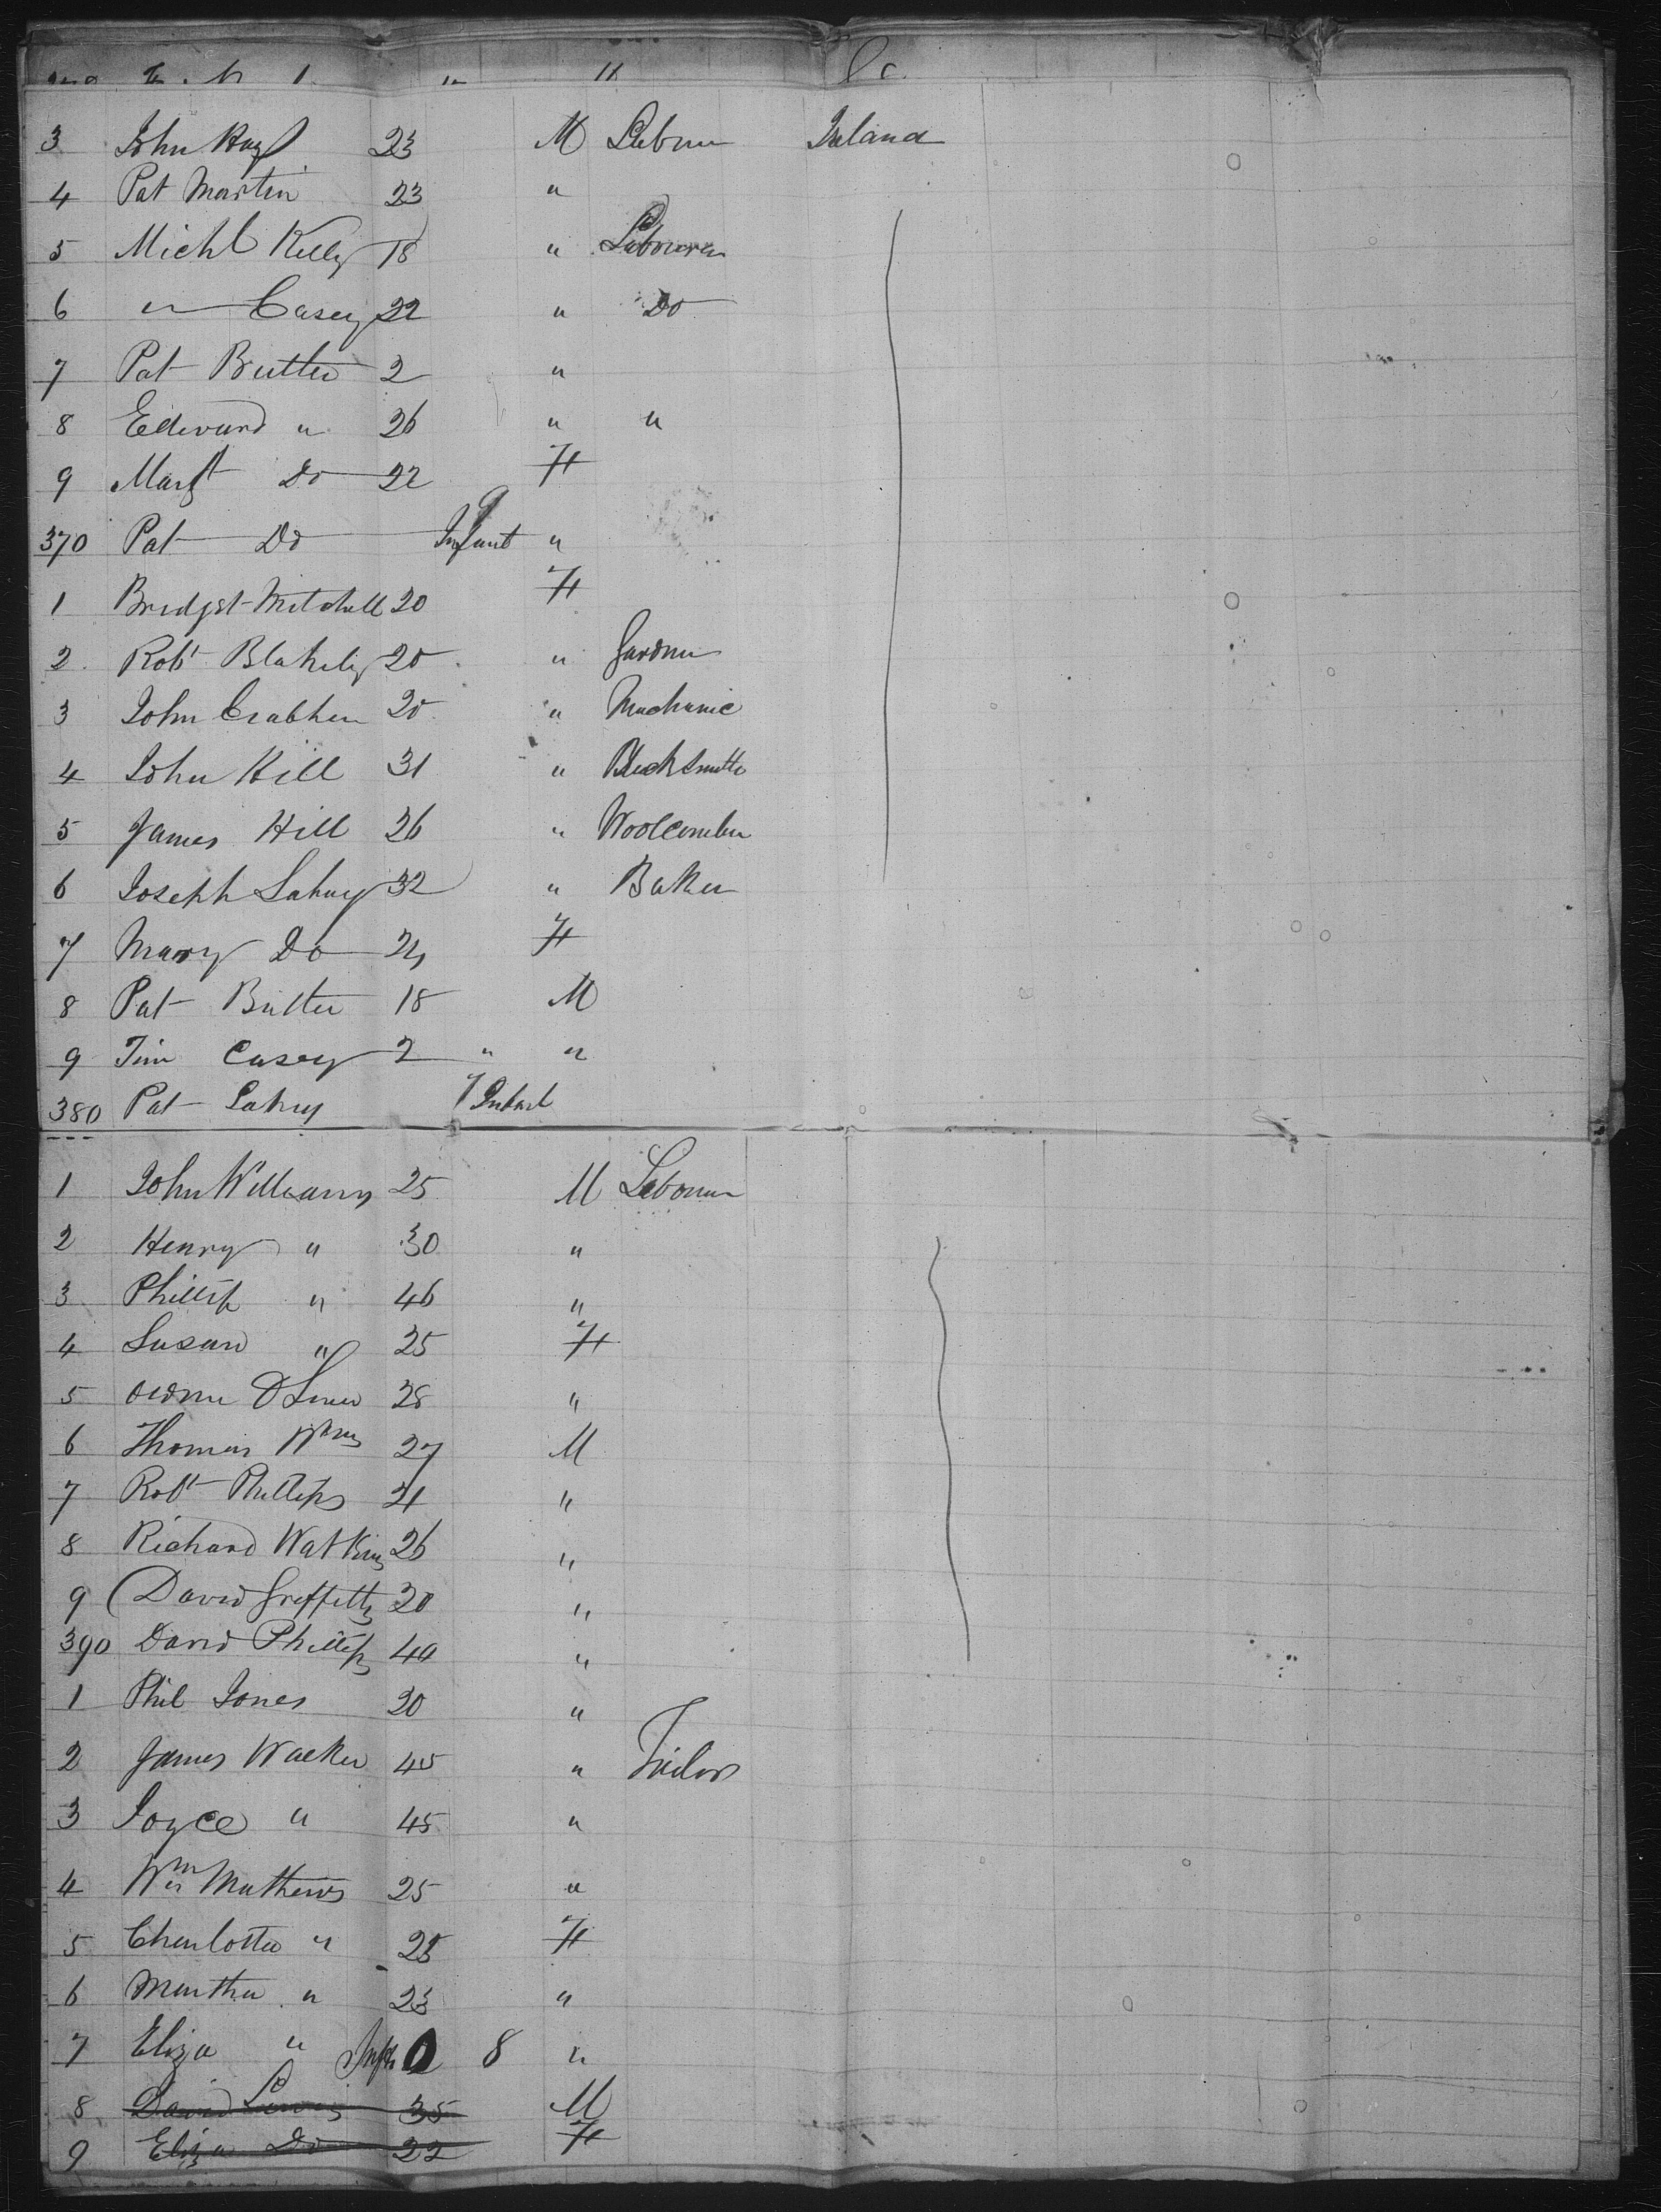 3 John Hay 23 M Labrer Ireland
4 Pat Martin 23 "
5 Michl Kelly 18 " Labourer
6 " Casey 22 " Do
7 Pat Butler 2 "
8 Edward " 26 " "
9 Margt Do 22 F
370 Pat Do Infant "
1 Bridget Mitchell 20 F
2 Robt Blakely 20 " Gardner
3 John 20 " Mechanic
4 John Hill 31 " Blacksmith
5 James Hill 26 " Woolcomber
6 Joseph Lahey 32 " Baker
7 Mary Do 24 F
8 Pat Butler 18 M
9 Tim Casey 2 " "
380 Pat Lahey Infant
1 John Williams 25 M Labourer
2 Henry " 30 "
3 Phillip " 46 "
4 Susan " 25 F
5 28 "
6 Thomas Wms 27 M
7 Robt Phillips 21 "
8 Richard Watkins 26 "
9 David Griffitts 30 "
390 David Phillips 40 "
1 Phil Jones 20 "
2 James Walker 45 " Tailor
3 Joyce " 45 "
4 Wm Mathews 25 "
5 Charlotte " 25 F
6 Martha " 23 "
7 Eliza " Inft 0 8 "
8 David Lewis 35 M
9 Eliza Do 22 F